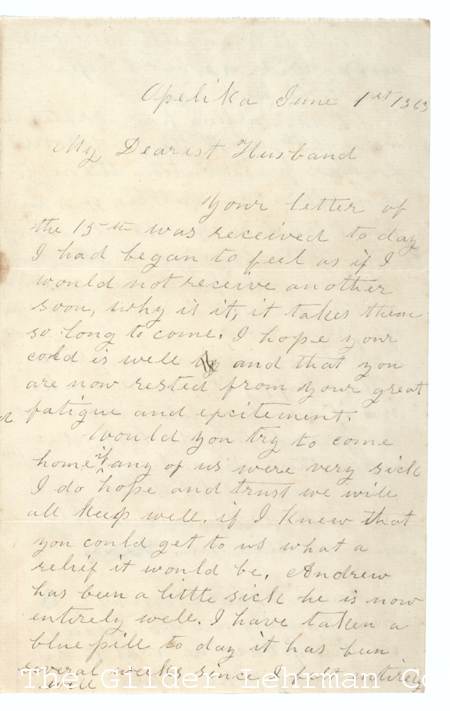 Opelika June 1st 1863
My Dearest Husband
Your letter of
the 15th was received to day
I had began to feel as if I
would not receive another
soon, why is it, it takes them
so long to come. I hope your
cold is well and that you
are now rested from your great
fatigue and excitement.
Would you try to come
home if any of us were very sick
I do hope and trust we will
all keep well. if I knew that
you could get to us what a
relief it would be. Andrew
has been a little sick he is now
entirely well. I have taken a
blue pill to day it has been
several weeks since I felt entirely
well
The Gilder Lehrman Co